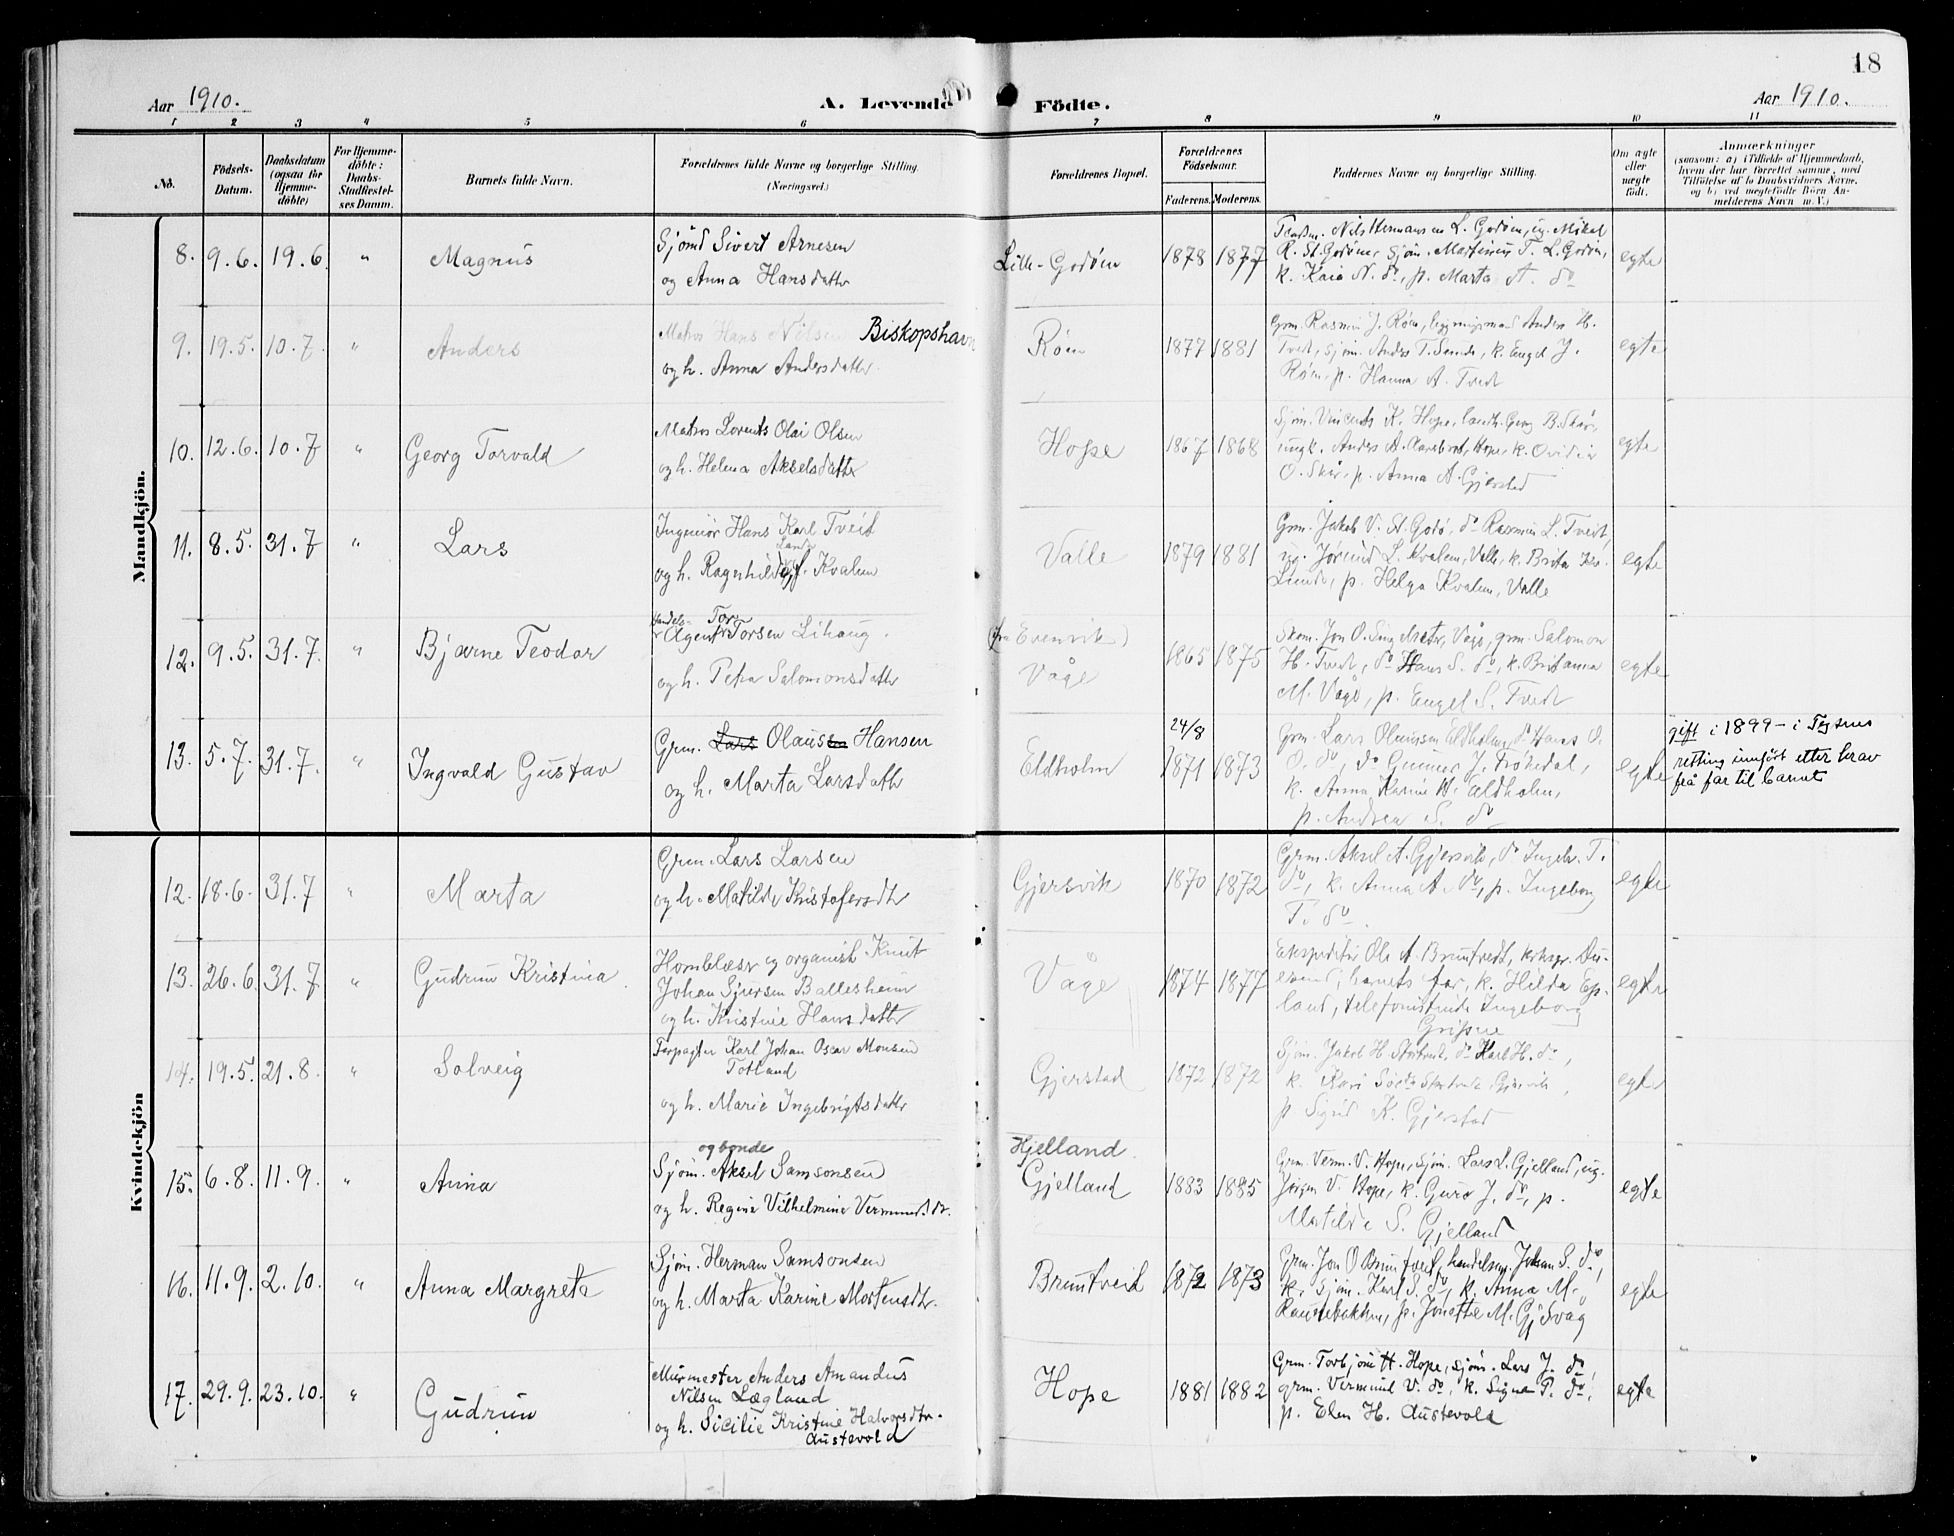 18
Aar 1910.
A. Levende Födte.
Aar 1910.
1 2 3 4 5 6 7 8 9 10 11
No.
Födsels-Datum.
Daabsdatum (ogsaa for Hjemmedöbte)
For Hjemmedöbte: Daabs-Stadfæstelses Datum.
Barnets fulde Navn.
Forældrenes fulde Navne og borgerlige Stilling.
(Næringsvei.)
Forældrenes Bopæl.
Forældrenes Födselsaar.
Faderens. Moderens.
Faddernes Navne og borgerlige Stilling.
Om ægte eller uægte födt.
Anmærkninger
(saasom: a) i Tilfælde af Hjemmedaab,
hvem der har forrettet samme, med
Tilföielse af to Daabsvidners Navne,
og b) ved uægtefödte Börn Anmelderens Navn m. V.)
Mandkjön.
8. 9.6. 19.6. " Magnus
Sjömd Sivert Arnesen
og Anna Hansdattr
Lille-Godøen 1878 1877
Nils Hermansen L. Godøen, ug. Mikal
R. St. Godøen, Sjöm. Martinius T. L. Godøen,
k. Kaia N. do, p. Marta A. do
egte
9. 19.5. 10.7. " Anders
Matros Hans Nilsen Biskopshavn
og h. Anna Andersdattr.
Røen 1877 1881
Grm. Rasmus J. Røen, Anders H.
Tvedt, sjöm. Anders T. Sunde, k. Engel J.
Røen, p. Hanna A. Tvedt
egte
10. 12.6. 10.7 " Georg Torvald
Matros Lorents Olai Olsen
og h. Helena Akselsdattr
Hope 1867 1868
Sjöm. Vincents K. Hope, Georg B. Skår,
ungk. Anders A. Hope, k. Ovidia
O. Skår, p. Anna A. Gjerstad
egte
11. 8.5. 31.7 " Lars
Ingeniör Hans Karl Tveit
og h. Ragnhild f. Kvalem
Valle 1879 1881
Grm. Jakob V. St. Godö, do Rasmus L. Tveit,
ug. Jørund L. Kvalem, Valle, k. Brita
Lunde, p. Helga Kvalem, Valle
egte
12. 9.5. 31.7. " Bjarne Teodor
Handels- Tor
Agent Torsen Lihaug.
og h. Petra Salomonsdattr
(fra Evenvik)
Våge 1865 1875
Skom. Jon O. Våge, grm. Salomon
H. Tvedt, do Hans S. do, k. Britanna
M. Våge, p. Engel S. Tvedt
egte
13. 5.7. 31.7. " Ingvald Gustav
Grm. Lars Olausen Hansen
og h. Marta Larsdattr
Eldholm
24/8
1871 1873
Grm. Lars Olaussen Eldholm, do Hans O.
do, do Gunnar J. Frökedal,
k. Anna Karine H. Eldholm,
p. Andrea S. do
egte
gift i 1899 - i Tysnes
retting innfört etter krav
frå far til barnet
Kvindekjön
12. 18.6. 31.7 " Marta
Grm. Lars Larsen
og h. Matilde Kristofersdtr
Gjersvik 1870 1872
Grm. Aksel A. Gjersvik, do Ingebr. T.
do, k. Anna A. do, p. Ingeborg
T. do
egte
13. 26.6. 31.7 " Gudrun Kristina
Hornblæser og organist Knut
Johan Sjursen Ballesheim
og h. Kristine Hansdattr
Våge 1874 1877
Ekspeditör Ole A. Bruntvedt, kirkesgr.
barnets far, k. Hilda Epland,
telefonistinde Ingeborg
egte
14. 19.5. 21.8. " Solveig
Forpagter Karl Johan Oscar Monsen
Totland
og h. Marie Ingebrigtsdattr
Gjerstad 1872 1872
Sjöm. Jakob H. do Karl H. do,
k. Kari
p Sigrid K. Gjerstad
egte
15. 6.8. 11.9. " Anna
og bonde
Sjöm. Aksel Samsonsen
og h. Regina Vilhelmine Vermundsdr.
Hjelland
Gjelland 1883 1885
Grm. Verm. V. Hope, sjöm. Lars L. Gjelland, ug.
Jörgen V. Hope, k. Guro J. do, p.
Matilde S. Gjelland
egte
16. 11.9. 2.10. " Anna Margreta
Sjöm. Herman Samsonsen
og h. Marta Karine Mortensdtr.
Bruntveit 1872 1873
Grm. Jon O Bruntveit, handelsm. Johan S. do,
k. Sjöm. Karl S. do, k. Anna M.
p. Jonette M. Gjövåg
egte
17. 29.9. 23.10. " Gudrun
Murmester Anders Amandus
Nilsen Lægland
og h. Sicilie Kristine Halvorsdtr.
Austevold
Hope 1881 1882
Grm. Torbjörn H. Hope, sjöm. Lars J. do
grm. Vermund V. do, k. Signa T. do,
p. Elen H. Austevold
egte